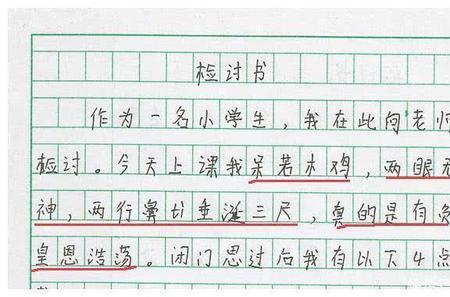 检讨书
作为一名小学生，我在此向老师
检讨。今天上课我呆若木鸡，两眼无
神，两行鼻涕垂涎三尺，真的是有负
皇恩浩荡。闭门思过后我有以下4点